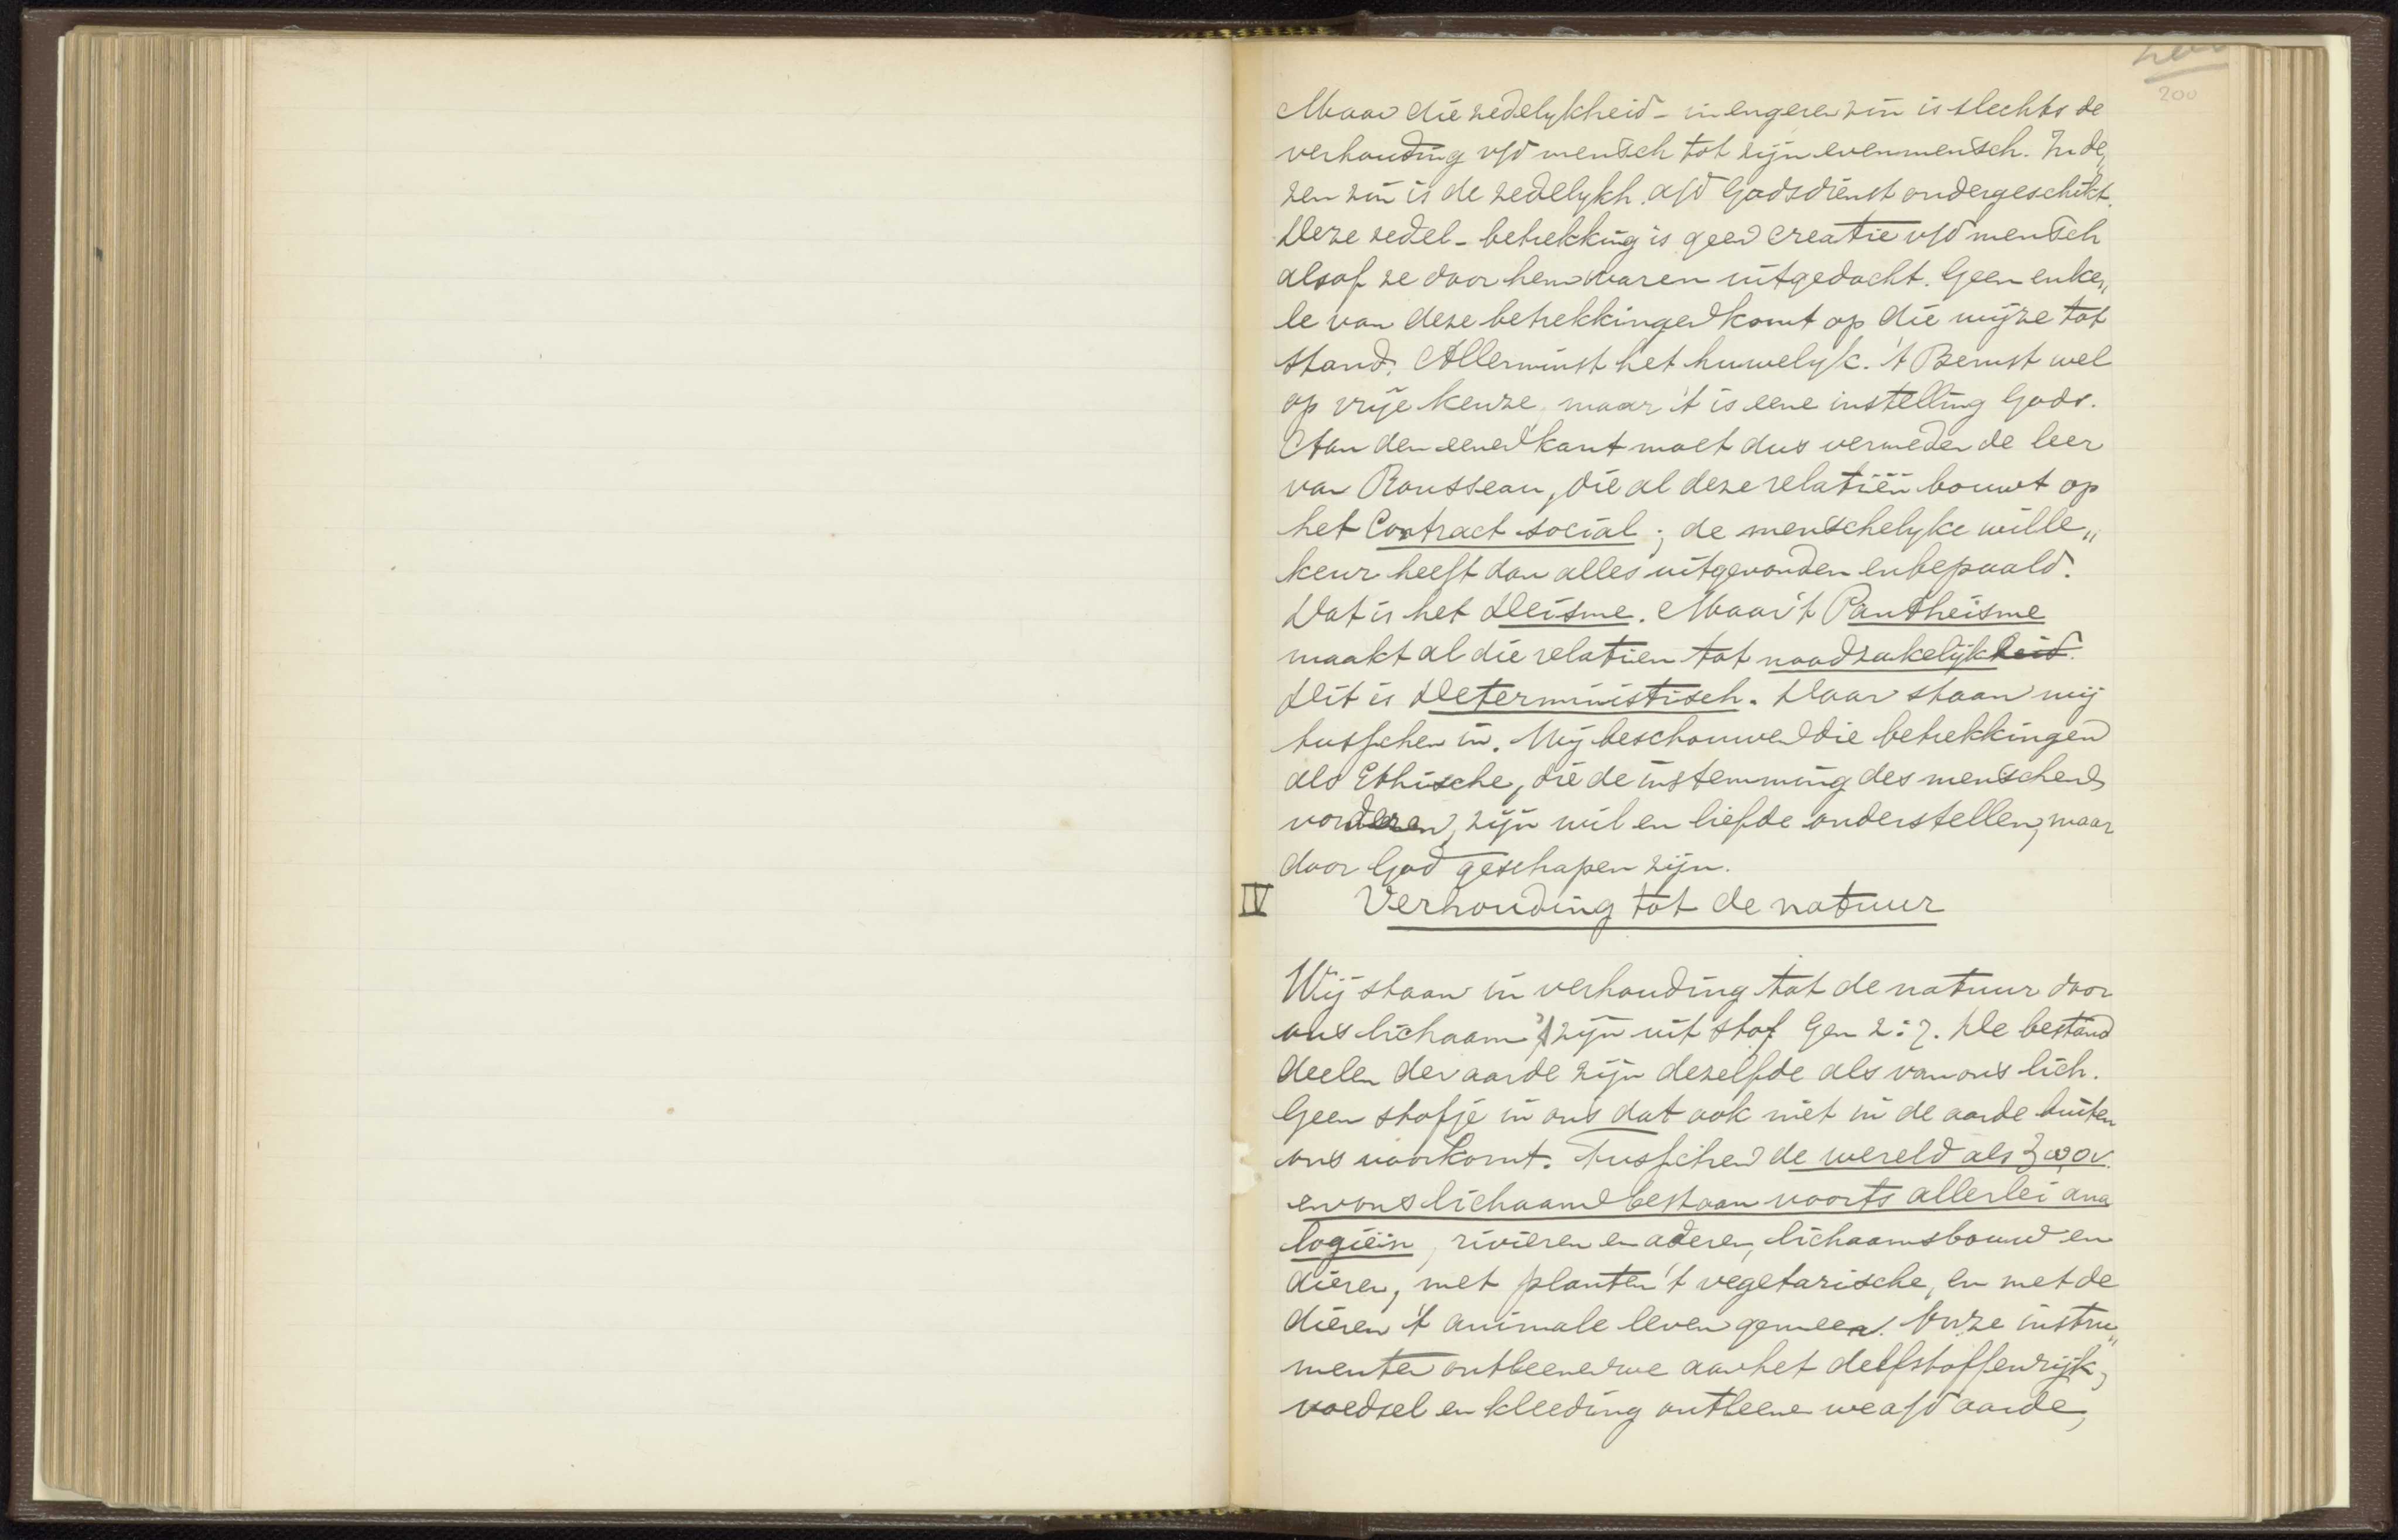 200
200
Maar die zedelykheid - in engeren zin is slechts de
verhouding v/d mensch tot zijn evenmensch. In de„
zen zin is de zedelykh. a/d Godsdienst ondergeschikt.
Deze zedel - betrekking is geen creatie v/d mensch
alsof ze door hem waren uitgedacht. Geen enke„
le van deze betrekkingen komt op die wijze tot
stand. Allerminst het huwelyk. 't Berust wel
op vrije keuze, maar 't is eene instelling Gods.
Aan den eenen kant moet dus vermeden de leer
van Rousseau, die al deze relatiën bouwt op
het Contract social; de menschelyke wille„
keur heeft dan alles uitgevonden en bepaald.
Dat is het Deisme. Maar 't Pantheisme
maakt al die relatien tot noodzakelijkheid.
Dit is Deterministisch. Daar staan wij
tusschen in. Wij beschouwen die betrekkingen
als Ethische, die de instemming des menschen
vorderen, zijn wil en liefde onderstellen, maar
door God geschapen zijn.
IV Verhouding tot de natuur
Wij staan in verhouding tot de natuur door
ons lichaam, 't zijn uit stof Gen 2:7. De bestand
deelen der aarde zijn dezelfde als van ons lich.
Geen stofje in ons dat ook niet in de aarde buiten
ons voorkomt. Tusschen de wereld als ζωον
en ons lichaam bestaan voorts allerlei ana
logieën, rivieren en aderen, lichaamsbouw en
dieren, met planten 't vegetarische, en met de
dieren 't animale leven gemeen. Onze instru„
menten ontleenen we aan het delfstoffenrijk,
voedsel en kleeding ontleenen we a/d aarde,